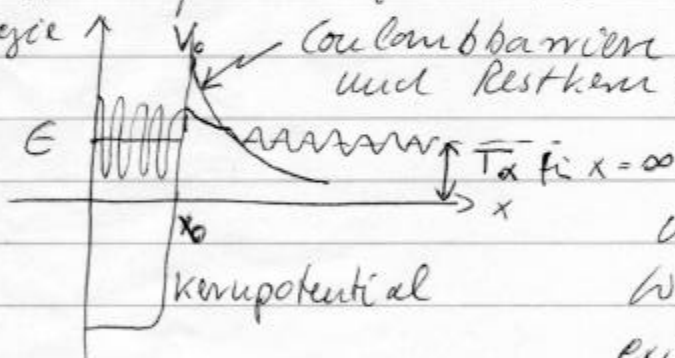 gie V₀ Coulombbarriere
und Restkern
E T_α für x = ∞
x
x₀
Kernpotential